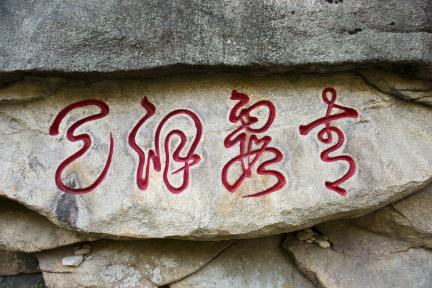 青霞洞天